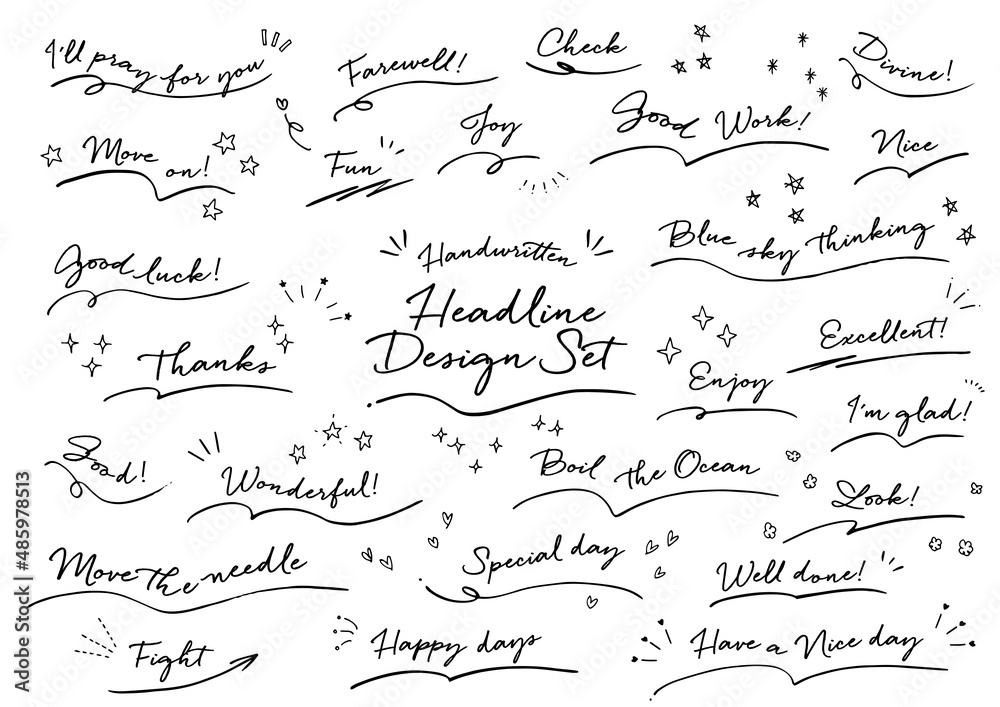 I'll pray for you
Farewell!
Check
Divine!
Move on!
Fun
Joy
Good Work!
Nice
Good luck!
Handwritten
Headline
Design Set
Blue sky thinking
Thanks
Enjoy
Excellent!
I'm glad!
Good!
Wonderful!
Boil the Ocean
Look!
Move the needle
Special day
Well done!
Fight
Happy days
Have a Nice day
Adobe Stock | #485978513